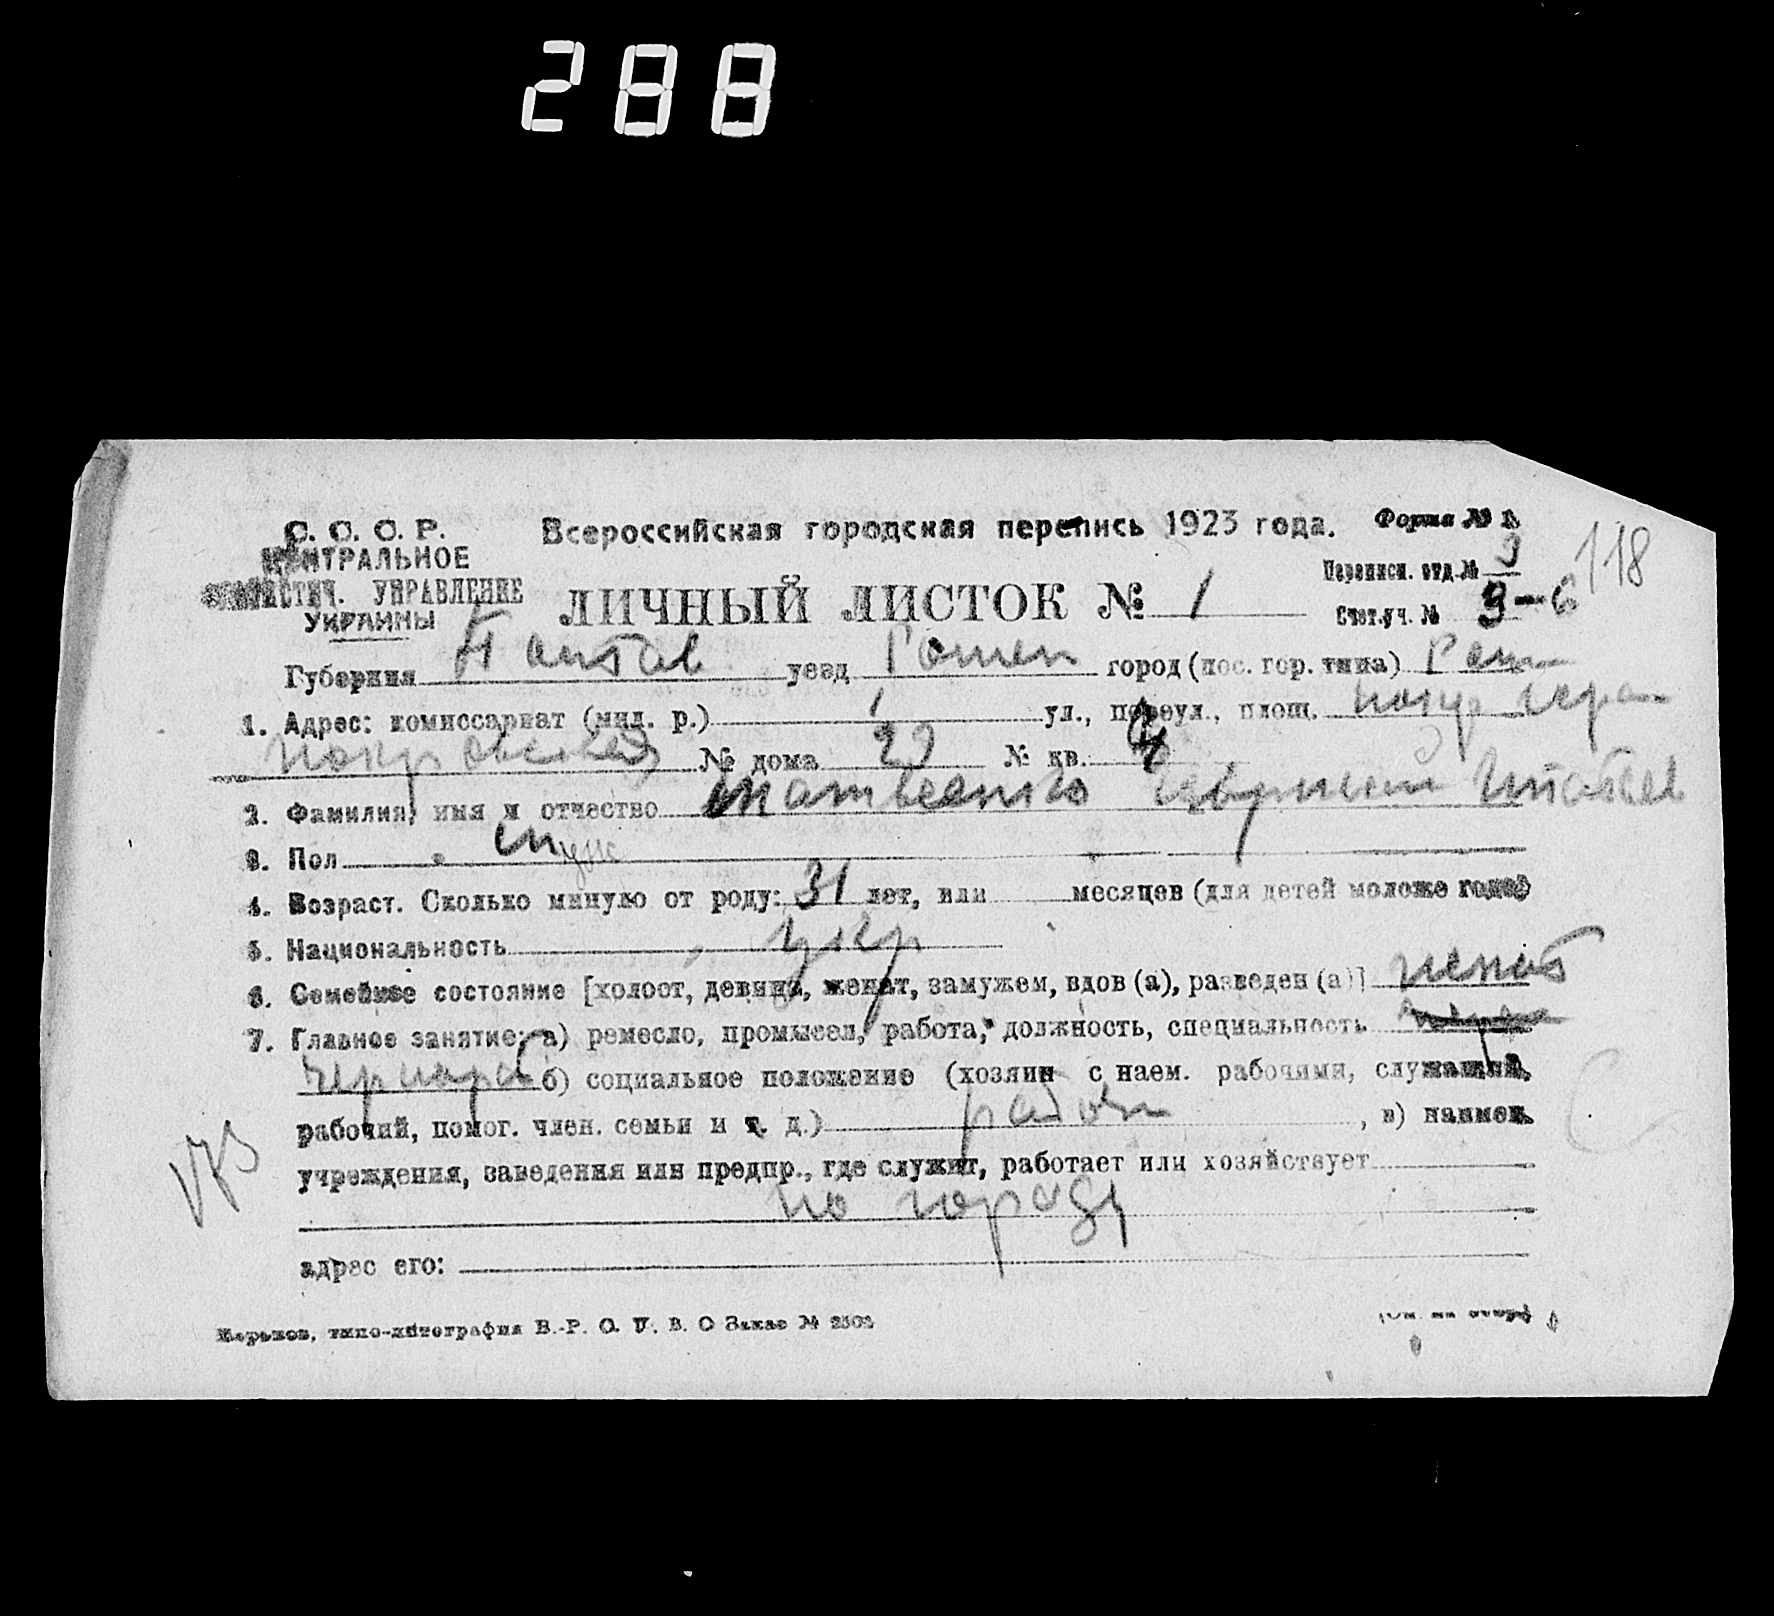 288
С. С. С. Р. Всероссийская городская перепись 1923 года. Форма №
ЦЕНТРАЛЬНОЕ
СТАТИСТИЧ. УПРАВЛЕНИЕ
УКРАИНЫ
ЛИЧНЫЙ ЛИСТОК № 1
Переписн. отд. № 3
Счет. уч. № 9-6
118
Губерния Полтав уезд Ромен город (пос. гор. типа) Ром
1. Адрес: комиссариат (мил. р.) ул., переул., площ.
№ дома 29 № кв. 4
2. Фамилия, имя и отчество Матвеенко
3. Пол муж
4. Возраст. Сколько минуло от роду: 31 лет, или месяцев (для детей моложе года)
5. Национальность укр
6. Семейное состояние [холост, девица, женат, замужем, вдов (а), разведен (а)] женат
7. Главное занятие: а) ремесло, промысел, работа, должность, специальность
б) социальное положение (хозяин с наем. рабочими, служащий,
рабочий, помог. член. семьи и т. д.) рабоч , в) наимен.
учреждения, заведения или предпр., где служит, работает или хозяйствует
по городу
адрес его:
Харьков, типо-литография В.-Р. О. У. В. О Заказ №